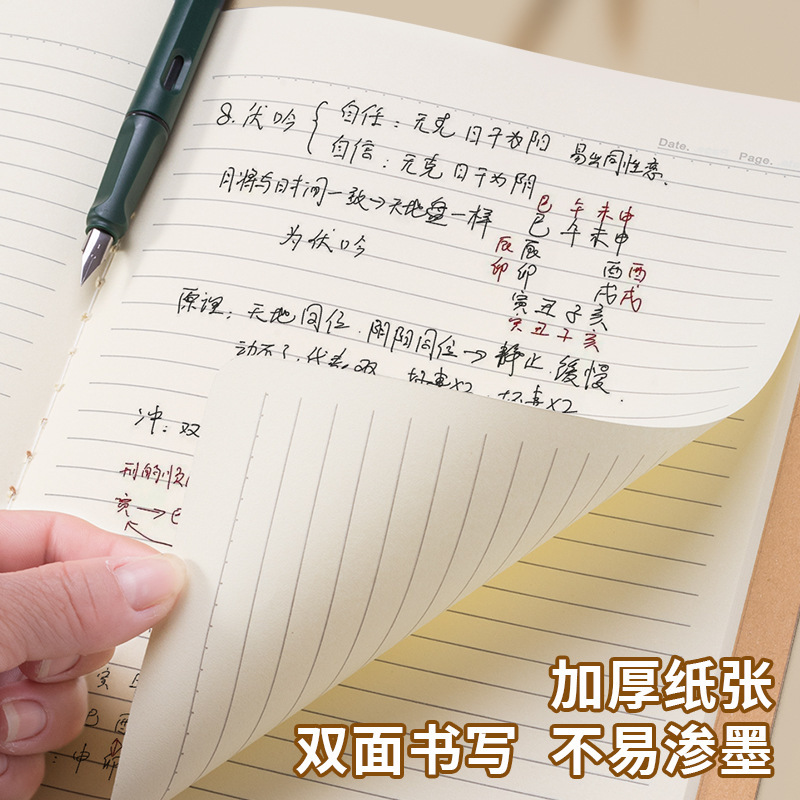 Date.
Page.
8. 伏吟
自任：元克 日干为阳 易出同性恋.
自信：元克 日干为阴
月将与时间一致→天地盘一样
为伏吟
巳 午 未 申
巳 午 未 申
辰 辰 酉 酉
卯 卯 戌 戌
寅 丑 子 亥
寅 丑 子 亥
原理：天地同位. 阴阳同位→静止. 缓慢.
动不了. 代表双
坏事X2. 好事X2
冲：双
刑的顺
亥→巳
加厚纸张
双面书写 不易渗墨